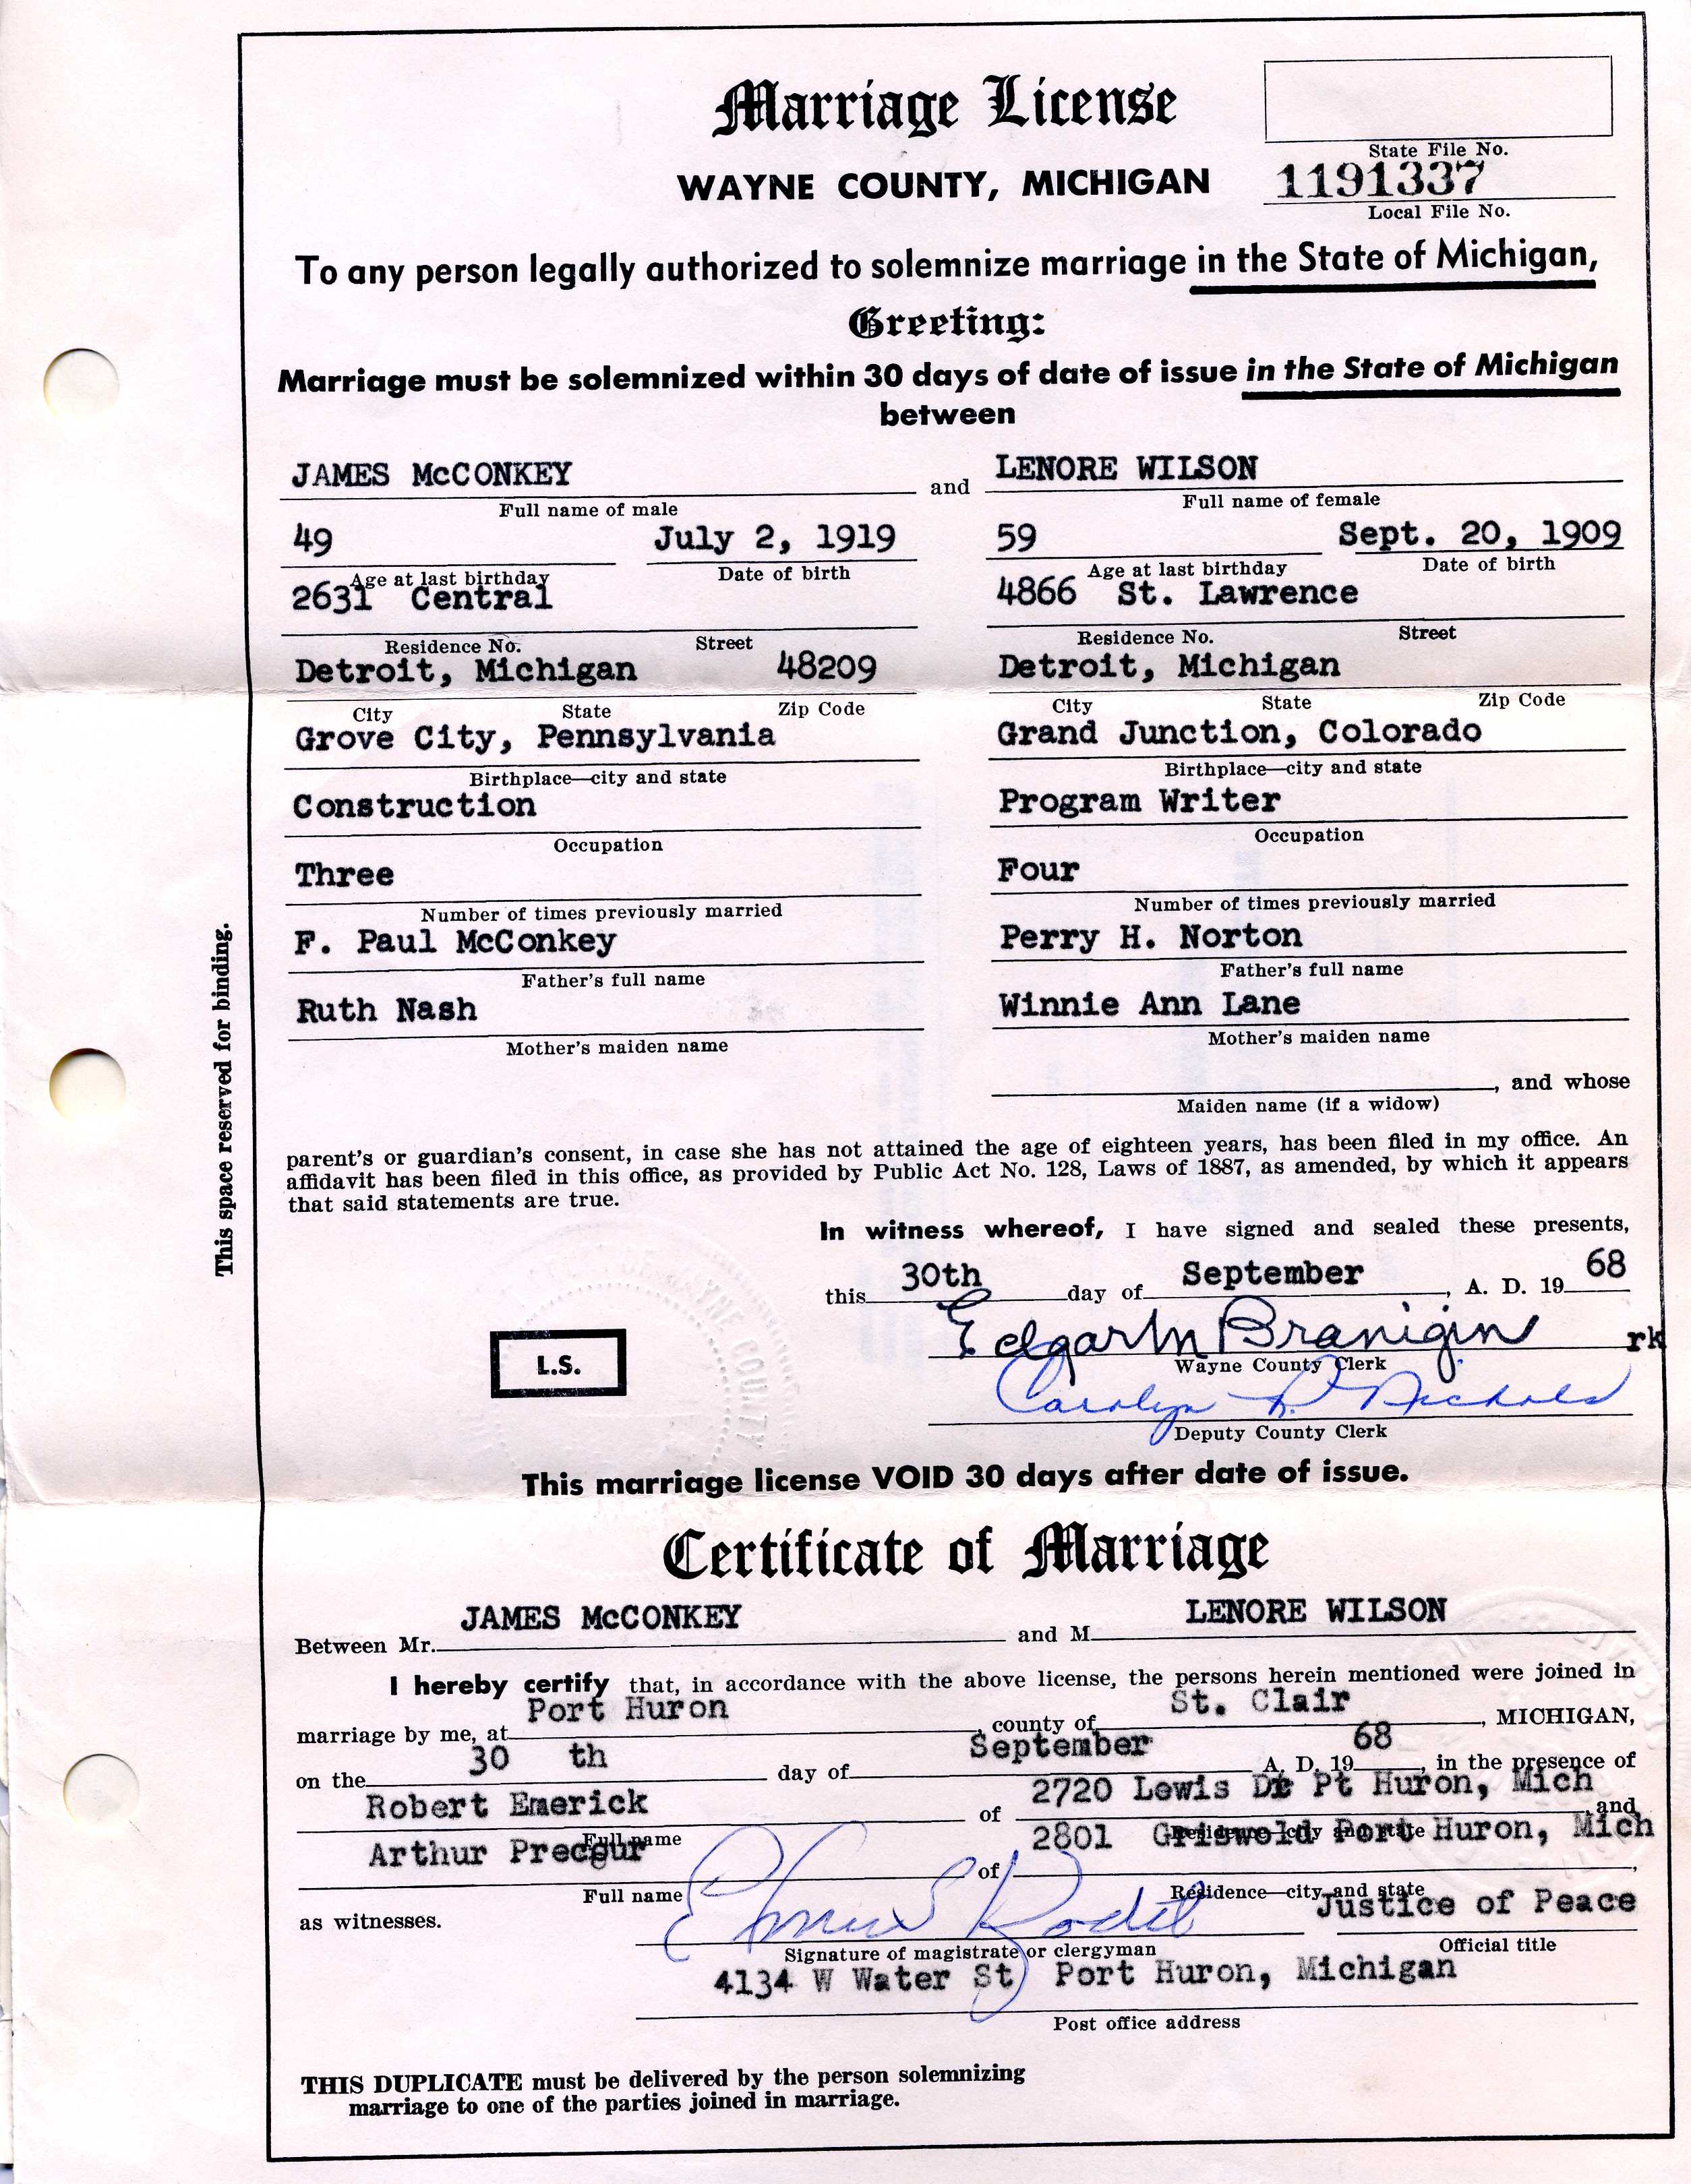 Marriage License
State File No.
WAYNE COUNTY, MICHIGAN
1191337
Local File No.
To any person legally authorized to solemnize marriage in the State of Michigan,
Greeting:
Marriage must be solemnized within 30 days of date of issue in the State of Michigan
between
JAMES McCONKEY and LENORE WILSON
Full name of male Full name of female
49 July 2, 1919 59 Sept. 20, 1909
Age at last birthday Date of birth Age at last birthday Date of birth
2631 Central 4866 St. Lawrence
Residence No. Street Residence No. Street
Detroit, Michigan 48209 Detroit, Michigan
City State Zip Code City State Zip Code
Grove City, Pennsylvania Grand Junction, Colorado
Birthplace—city and state Birthplace—city and state
Construction Program Writer
Occupation Occupation
Three Four
Number of times previously married Number of times previously married
F. Paul McConkey Perry H. Norton
Father's full name Father's full name
Ruth Nash Winnie Ann Lane
Mother's maiden name Mother's maiden name
, and whose
Maiden name (if a widow)
parent's or guardian's consent, in case she has not attained the age of eighteen years, has been filed in my office. An
affidavit has been filed in this office, as provided by Public Act No. 128, Laws of 1887, as amended, by which it appears
that said statements are true.
In witness whereof, I have signed and sealed these presents,
this 30th day of September, A. D. 19 68
Edgar M Branigin rk
Wayne County Clerk
L.S.
Carolyn R. Nichols
Deputy County Clerk
This marriage license VOID 30 days after date of issue.
Certificate of Marriage
Between Mr. JAMES McCONKEY and M LENORE WILSON
I hereby certify that, in accordance with the above license, the persons herein mentioned were joined in
marriage by me, at Port Huron, county of St. Clair, MICHIGAN,
on the 30 th day of September A. D. 19 68, in the presence of
Robert Emerick of 2720 Lewis Dr Pt Huron, Mich and
Full name Residence—city and state
Arthur Precour of 2801 Griswold Port Huron, Mich,
Full name Residence—city and state
as witnesses.
Justice of Peace
Signature of magistrate or clergyman Official title
4134 W Water St Port Huron, Michigan
Post office address
THIS DUPLICATE must be delivered by the person solemnizing
marriage to one of the parties joined in marriage.
This space reserved for binding.